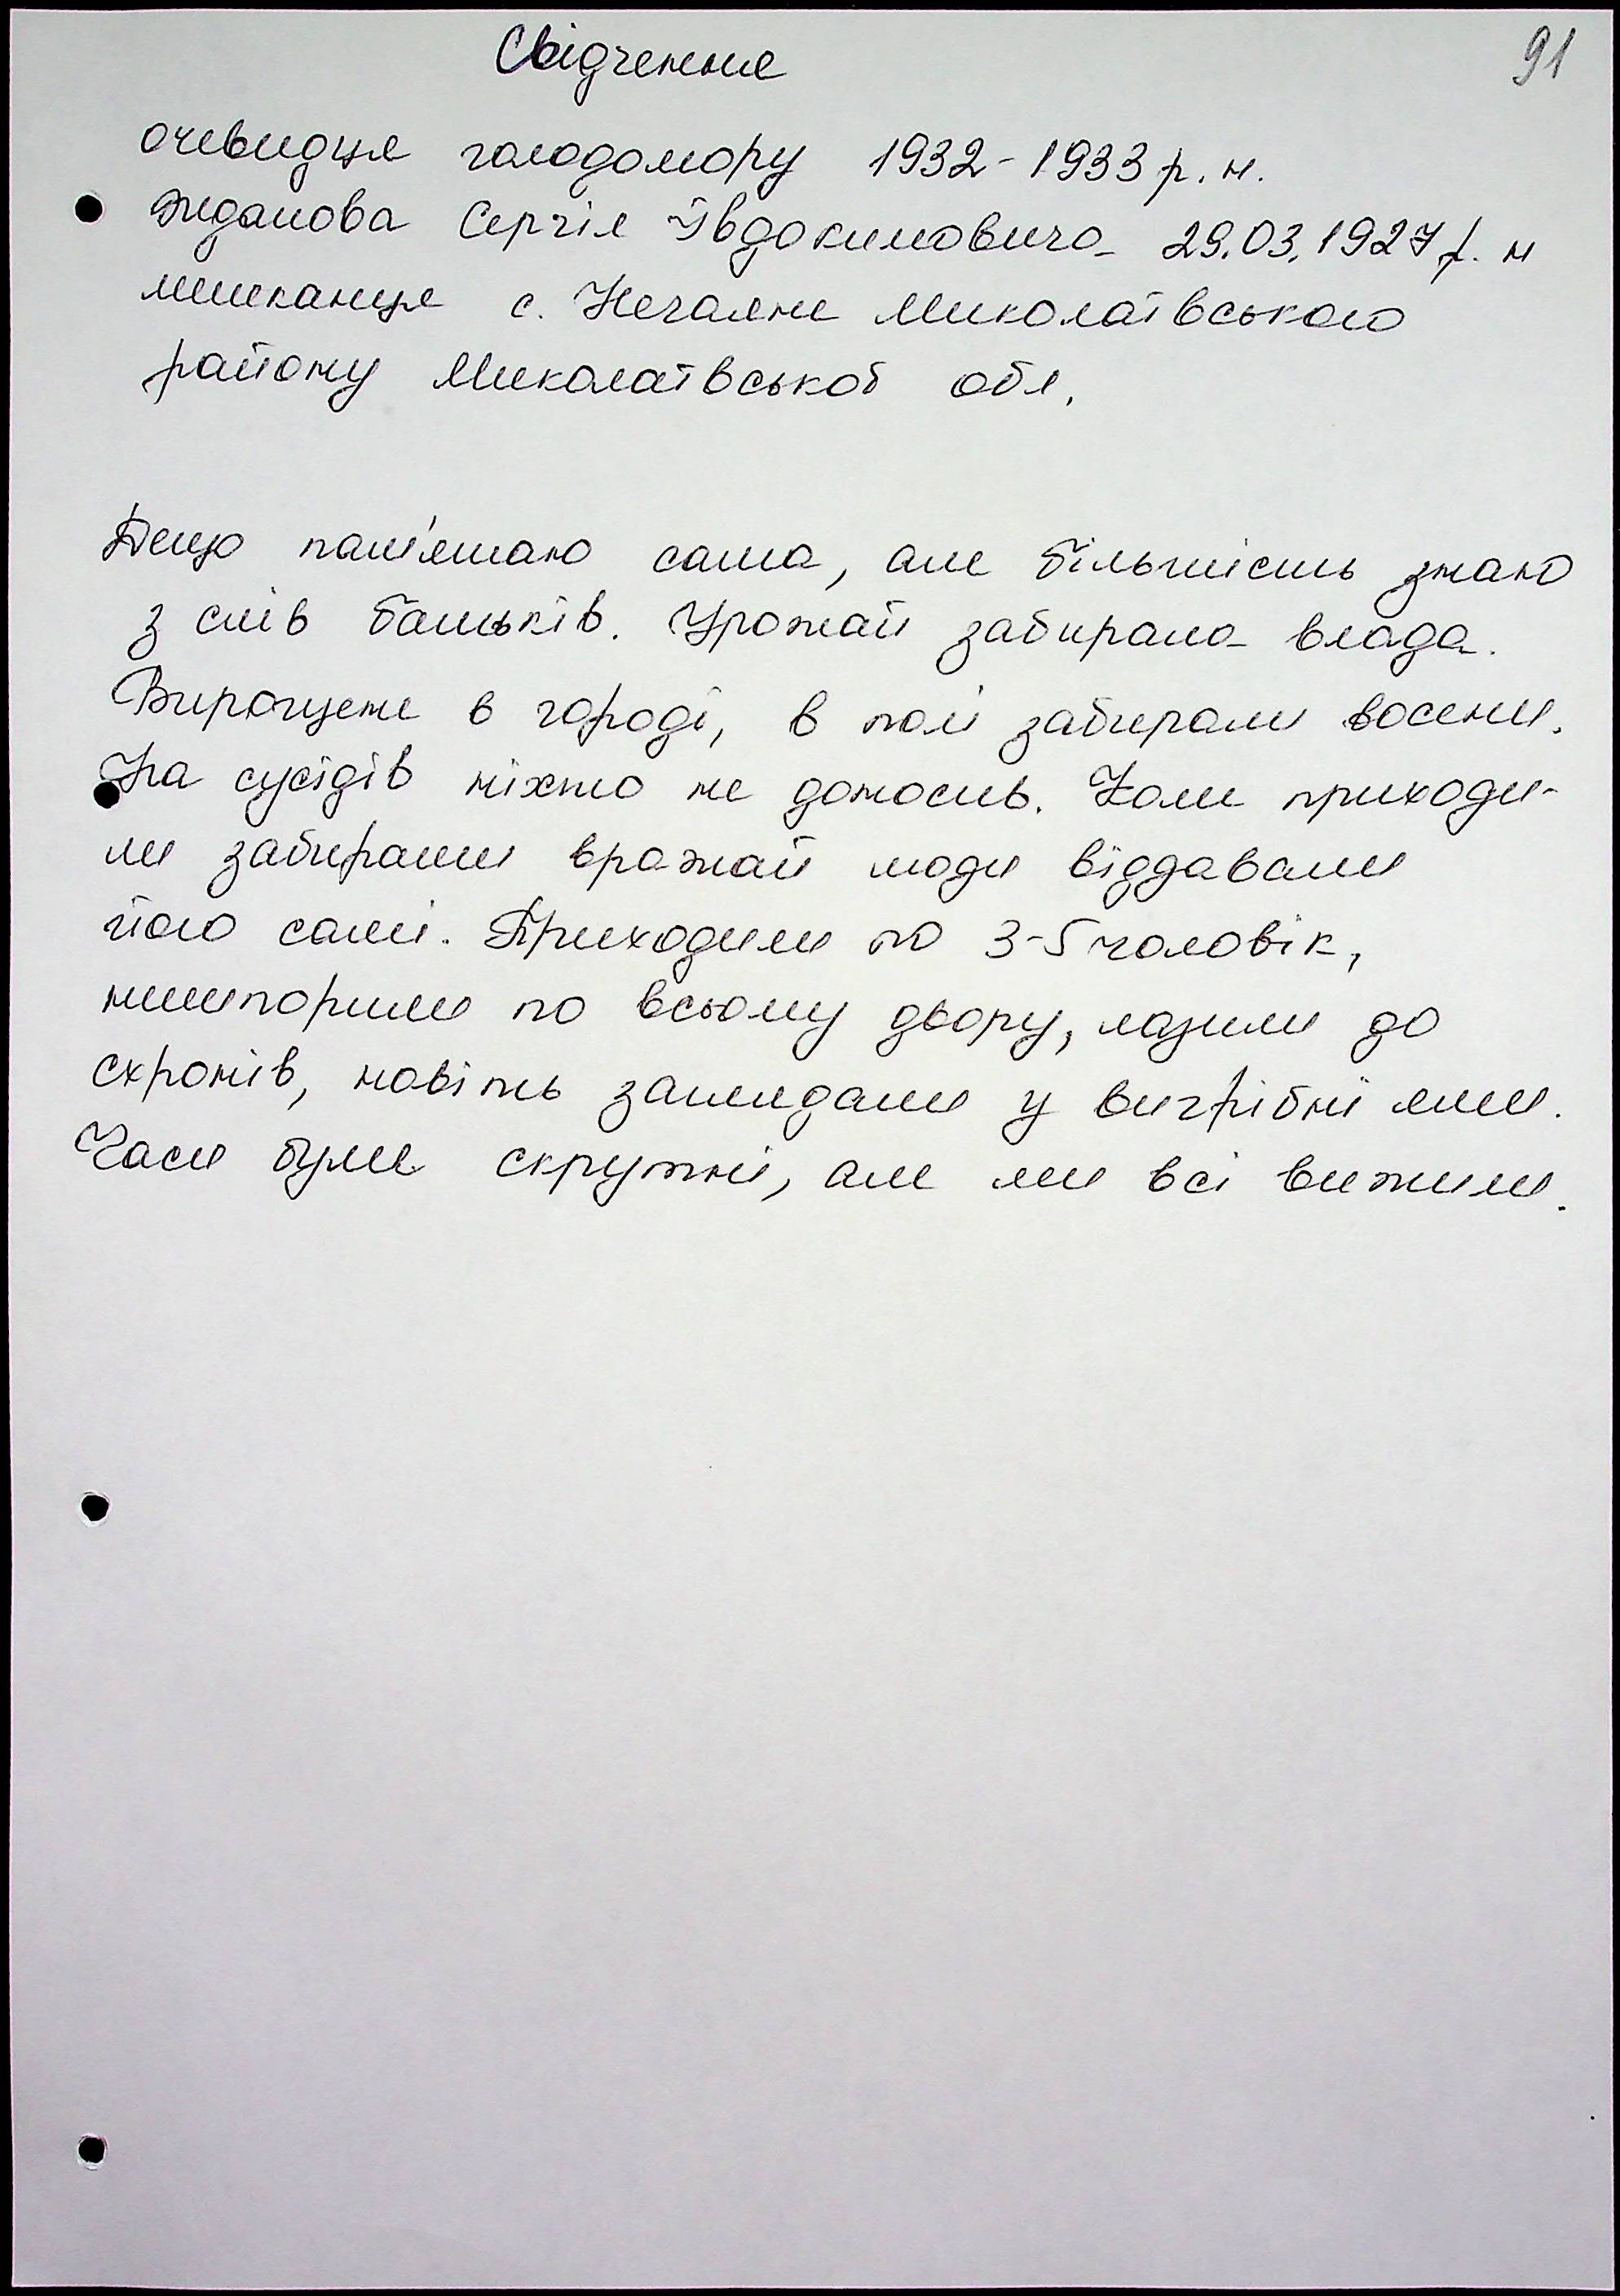 91
Свідчення
очевидця голодомору 1932-1933 р. н.
Жданова Сергія Ївдокимовича 29.03.1927 р. н
мешканця с. Нечаяне Миколаївського
району Миколаївської обл.
Дещо пам'ятаю сама, але більшість знаю
з слів батьків. Урожай забирала влада.
Вирощене в городі, в полі забирали восени.
На сусідів ніхто не доносив. Коли приходи-
ли забирати врожай люди віддавали
його самі. Приходили по 3-5 чоловік,
нишпорили по всьому двору, лазили до
схронів, навіть заглядали у вигрібні ями.
Часи були скрутні, але ми всі вижили.